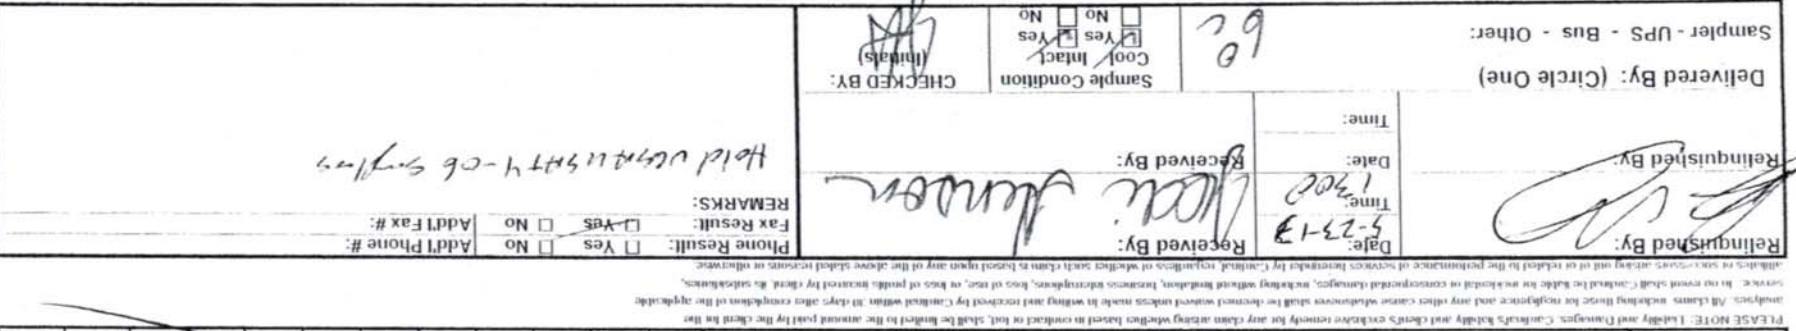 PLEASE NOTE: Liability and Damages. Cardinal's liability and client's exclusive remedy for any claim arising whether based in contract or tort, shall be limited to the amount paid by the client for the
analyses. All claims including those for negligence and any other cause whatsoever shall be deemed waived unless made in writing and received by Cardinal within 30 days after completion of the applicable
service. In no event shall Cardinal be liable for incidental or consequential damages, including without limitation, business interruptions, loss of use, or loss of profits incurred by client, its subsidiaries,
affiliates or successors arising out of or related to the performance of services hereunder by Cardinal, regardless of whether such claim is based upon any of the above stated reasons or otherwise.
Relinquished By:
Date:
5-23-13
Time:
1300
Received By:
Jodi Henson
Phone Result: Yes No Add'l Phone #:
Fax Result: Yes No Add'l Fax #:
REMARKS:
Hold
Relinquished By:
Date:
Time:
Received By:
Delivered By: (Circle One)
Sampler - UPS - Bus - Other:
Sample Condition
Cool Intact
Yes Yes
No No
CHECKED BY:
(Initials)